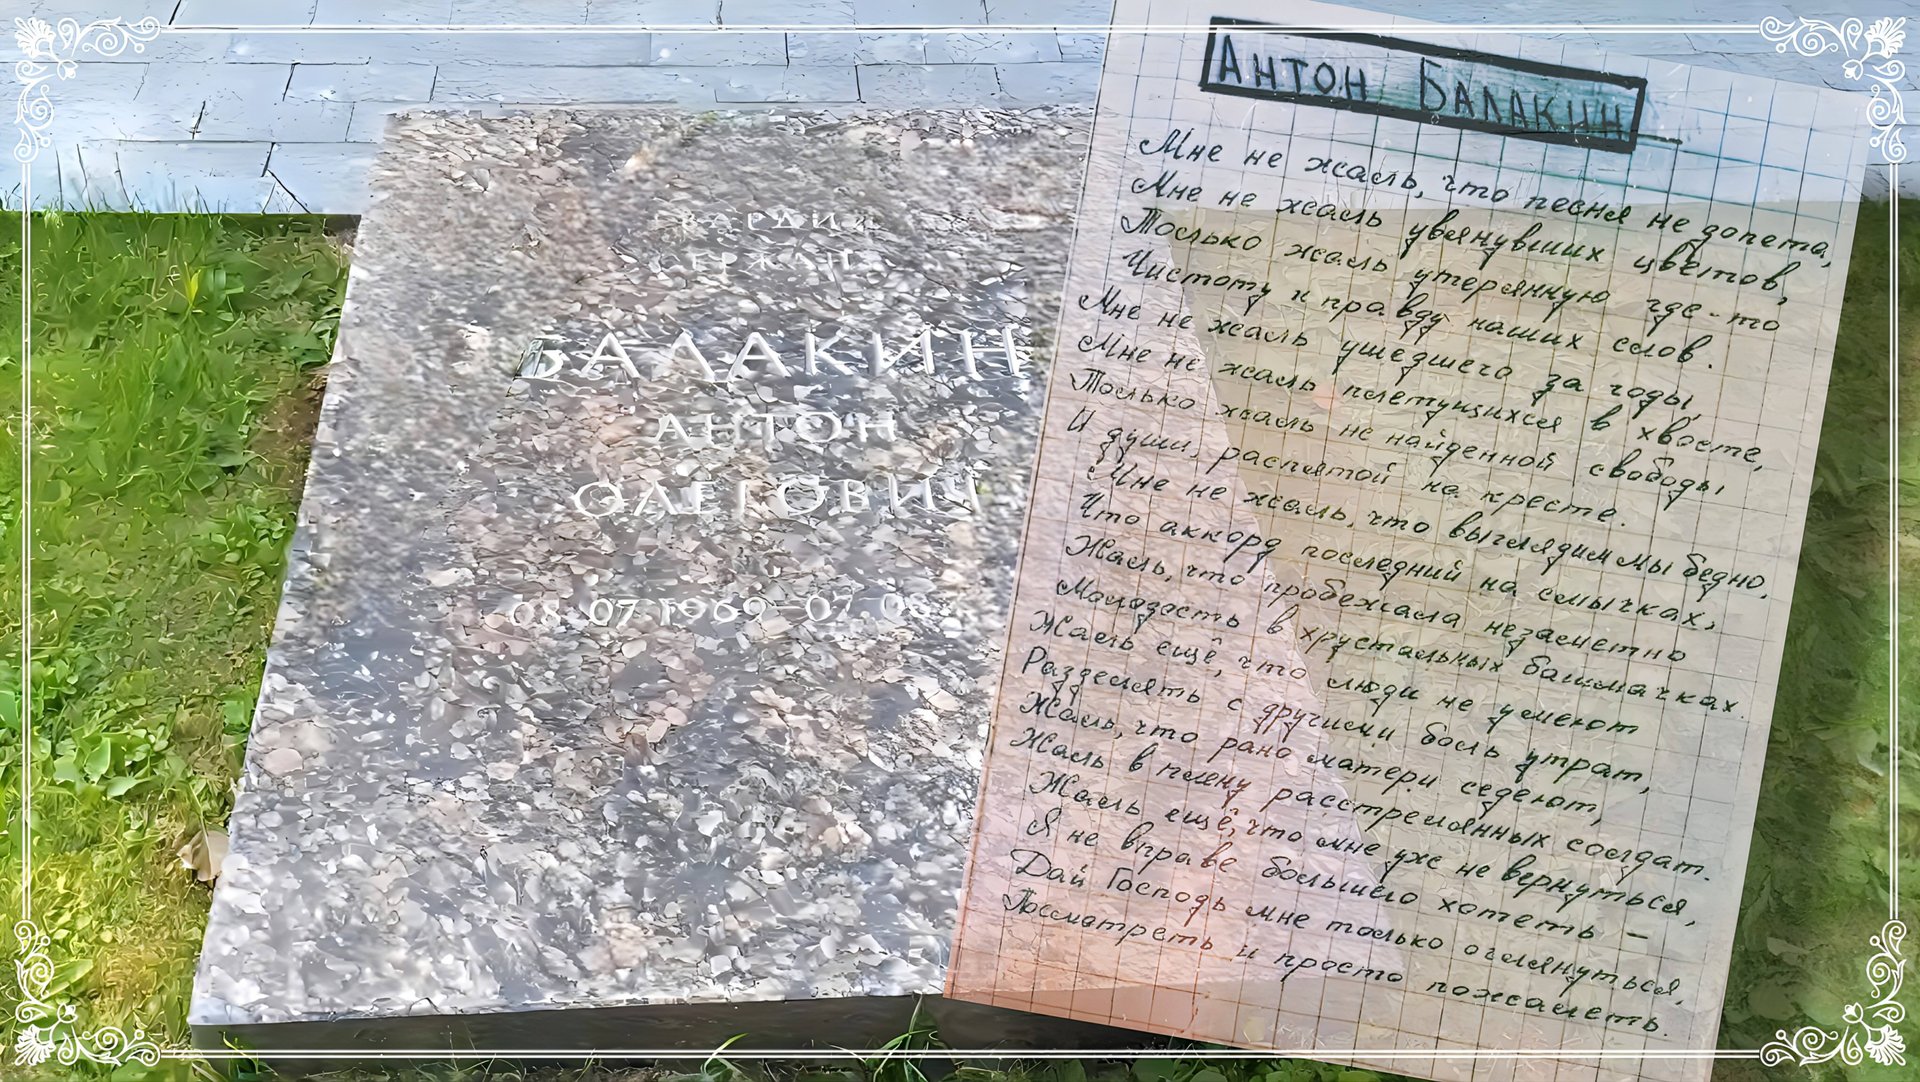 ГВАРДИИ
СЕРЖАНТ
БАЛАКИН
АНТОН
ОЛЕГОВИЧ
08.07.1969 07.0
АНТОН БАЛАКИН
Мне не жаль, что песня не допета,
Мне не жаль увянувших цветов,
Только жаль утерянную где-то
Чистоту и правду наших слов.
Мне не жаль ушедшего за годы,
Мне не жаль плетущихся в хвосте,
Только жаль не найденной свободы
И души, распятой на кресте.
Мне не жаль, что выглядим мы бедно,
Что аккорд последний на смычках,
Жаль, что пробежала незаметно
Молодость в хрустальных башмачках.
Жаль ещё, что люди не умеют
Разделять с другими боль утрат,
Жаль, что рано матери седеют,
Жаль в плену расстрелянных солдат.
Жаль ещё, что мне уже не вернуться,
Я не вправе большего хотеть –
Дай Господь мне только оглянуться,
Посмотреть и просто пожалеть.